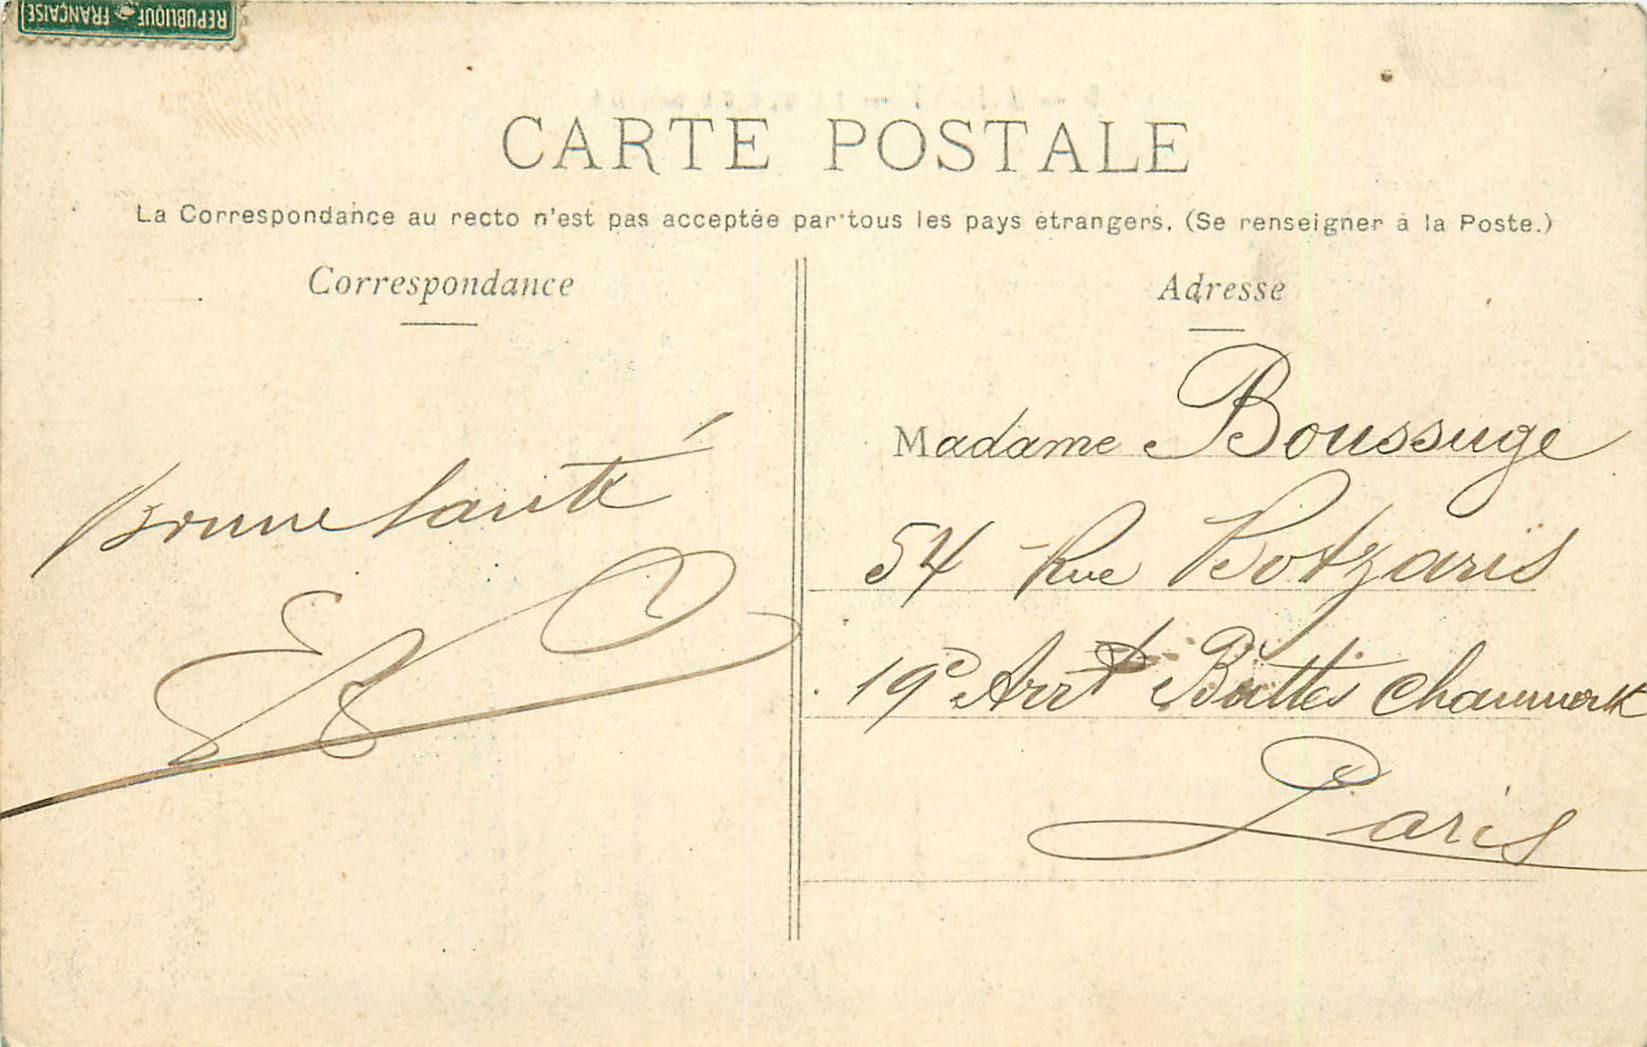 REPUBLIQUE FRANÇAISE
CARTE POSTALE
La Correspondance au recto n'est pas acceptée par tous les pays étrangers. (Se renseigner à la Poste.)
Correspondance
Bonne Santé
Adresse
Madame Boussuge
54 Rue Botzaris
19e Arrt Buttes Chaumont
Paris